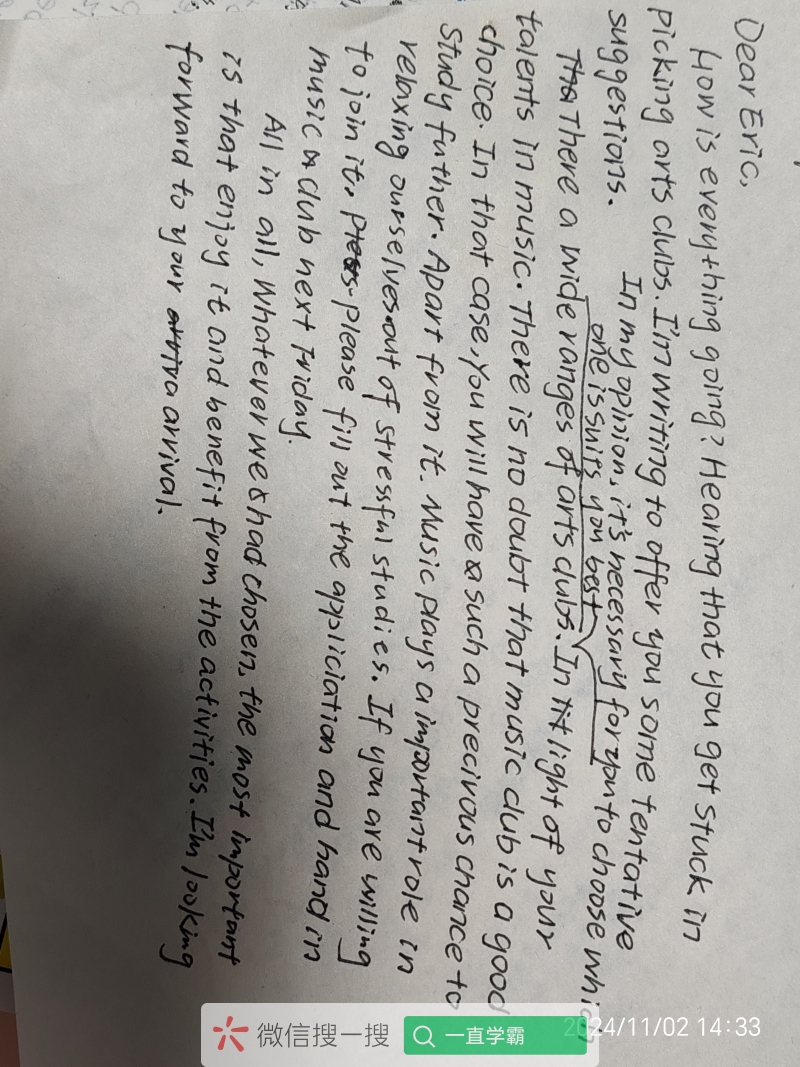 Dear Eric,
How is everything going? Hearing that you get stuck in
picking arts clubs. I'm writing to offer you some tentative
suggestions.
In my opinion, it's necessary for you to choose which
one is suits you best
There a wide ranges of arts clubs. In light of your
talents in music. There is no doubt that music club is a good
choice. In that case, you will have such a precirous chance to
Study futher. Apart from it. Music plays a important role in
relaxing ourselves out of stressful studies. If you are willing
to join it, please fill out the appliciation and hand in
music club next Friday.
All in all, Whatever we had chosen, the most important
is that enjoy it and benefit from the activities. I'm looking
forward to your arrival.
微信搜一搜
一直学霸
2024/11/02 14:33